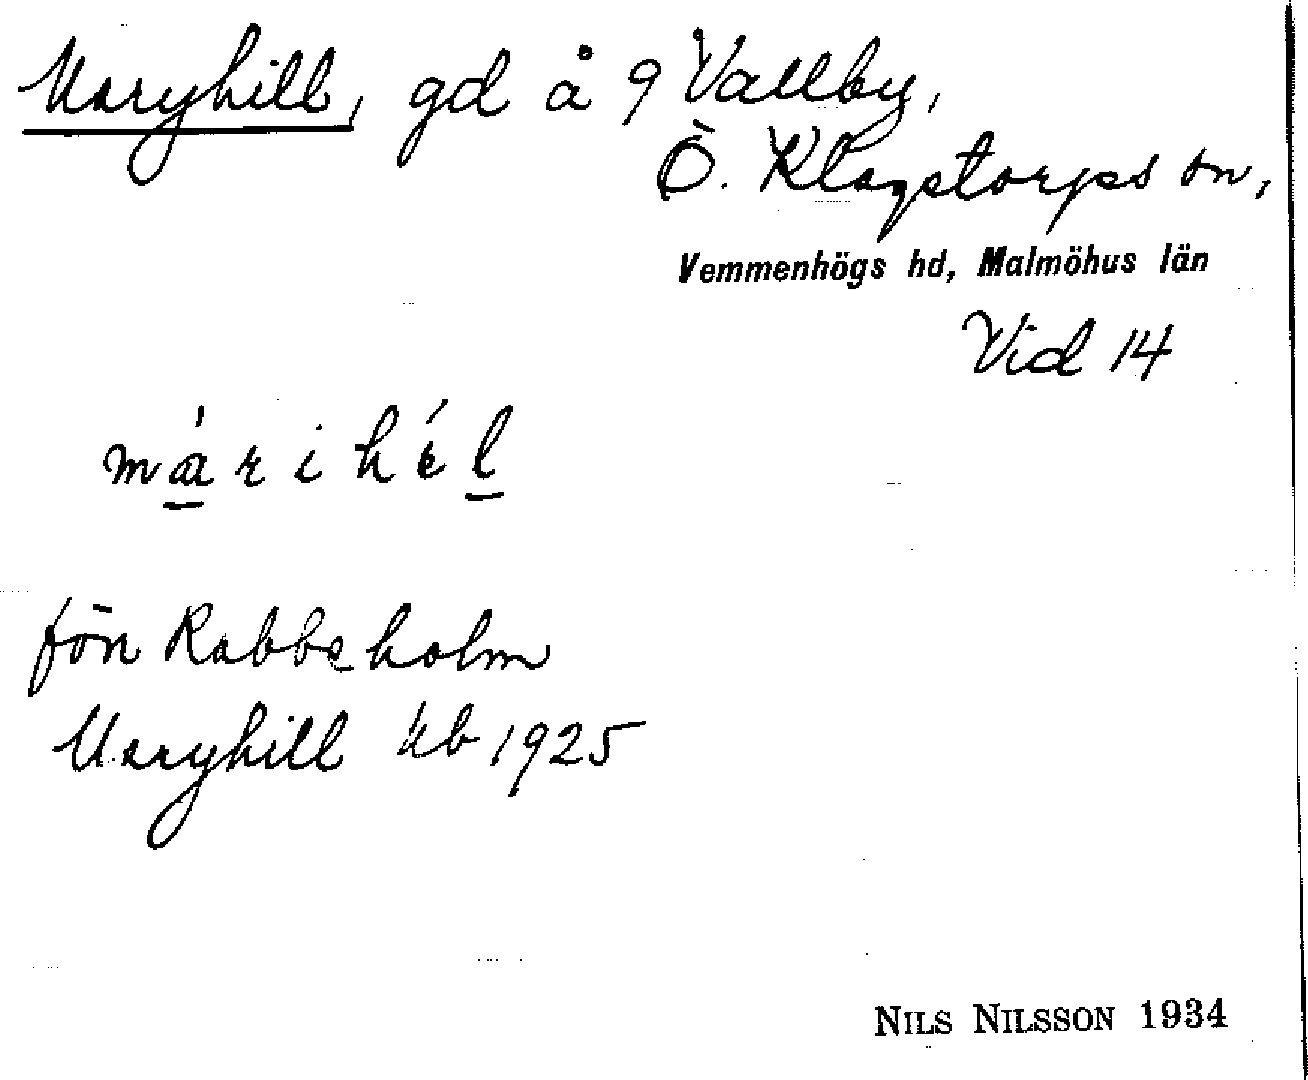 Maryhill, gd å 9 Vallby,
Ö. Klagstorps sn,
Vemmenhögs hd, Malmöhus län
Vid 14
má̱rihéḻ
fön Rabbeholm
Maryhill kb 1925
NILS NILSSON 1934